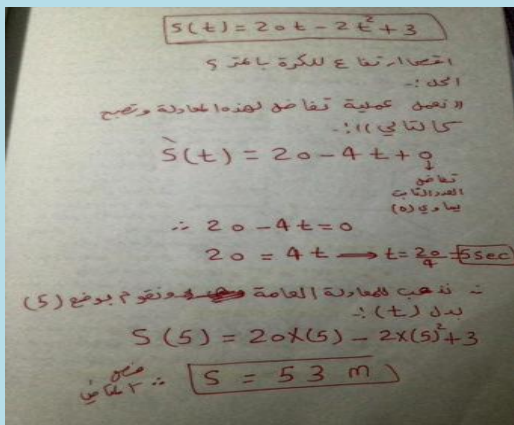 S(t) = 20t - 2t² + 3
اقصى ارتفاع للكرة بالمتر ؟
الحل :-
((نعمل عملية تفاضل لهذه المعادلة وتصبح
كالتالي )) :-
S̀(t) = 20 - 4t + 0
تفاضل
العدد الثابت
يساوي (0)
∴ 20 - 4t = 0
20 = 4t → t = 20/4 = 5sec
∴ نذهب للمعادلة العامة ونقوم بوضع (5)
بدل (t) :-
S(5) = 20×(5) - 2×(5)² + 3
∴ S = 53 m